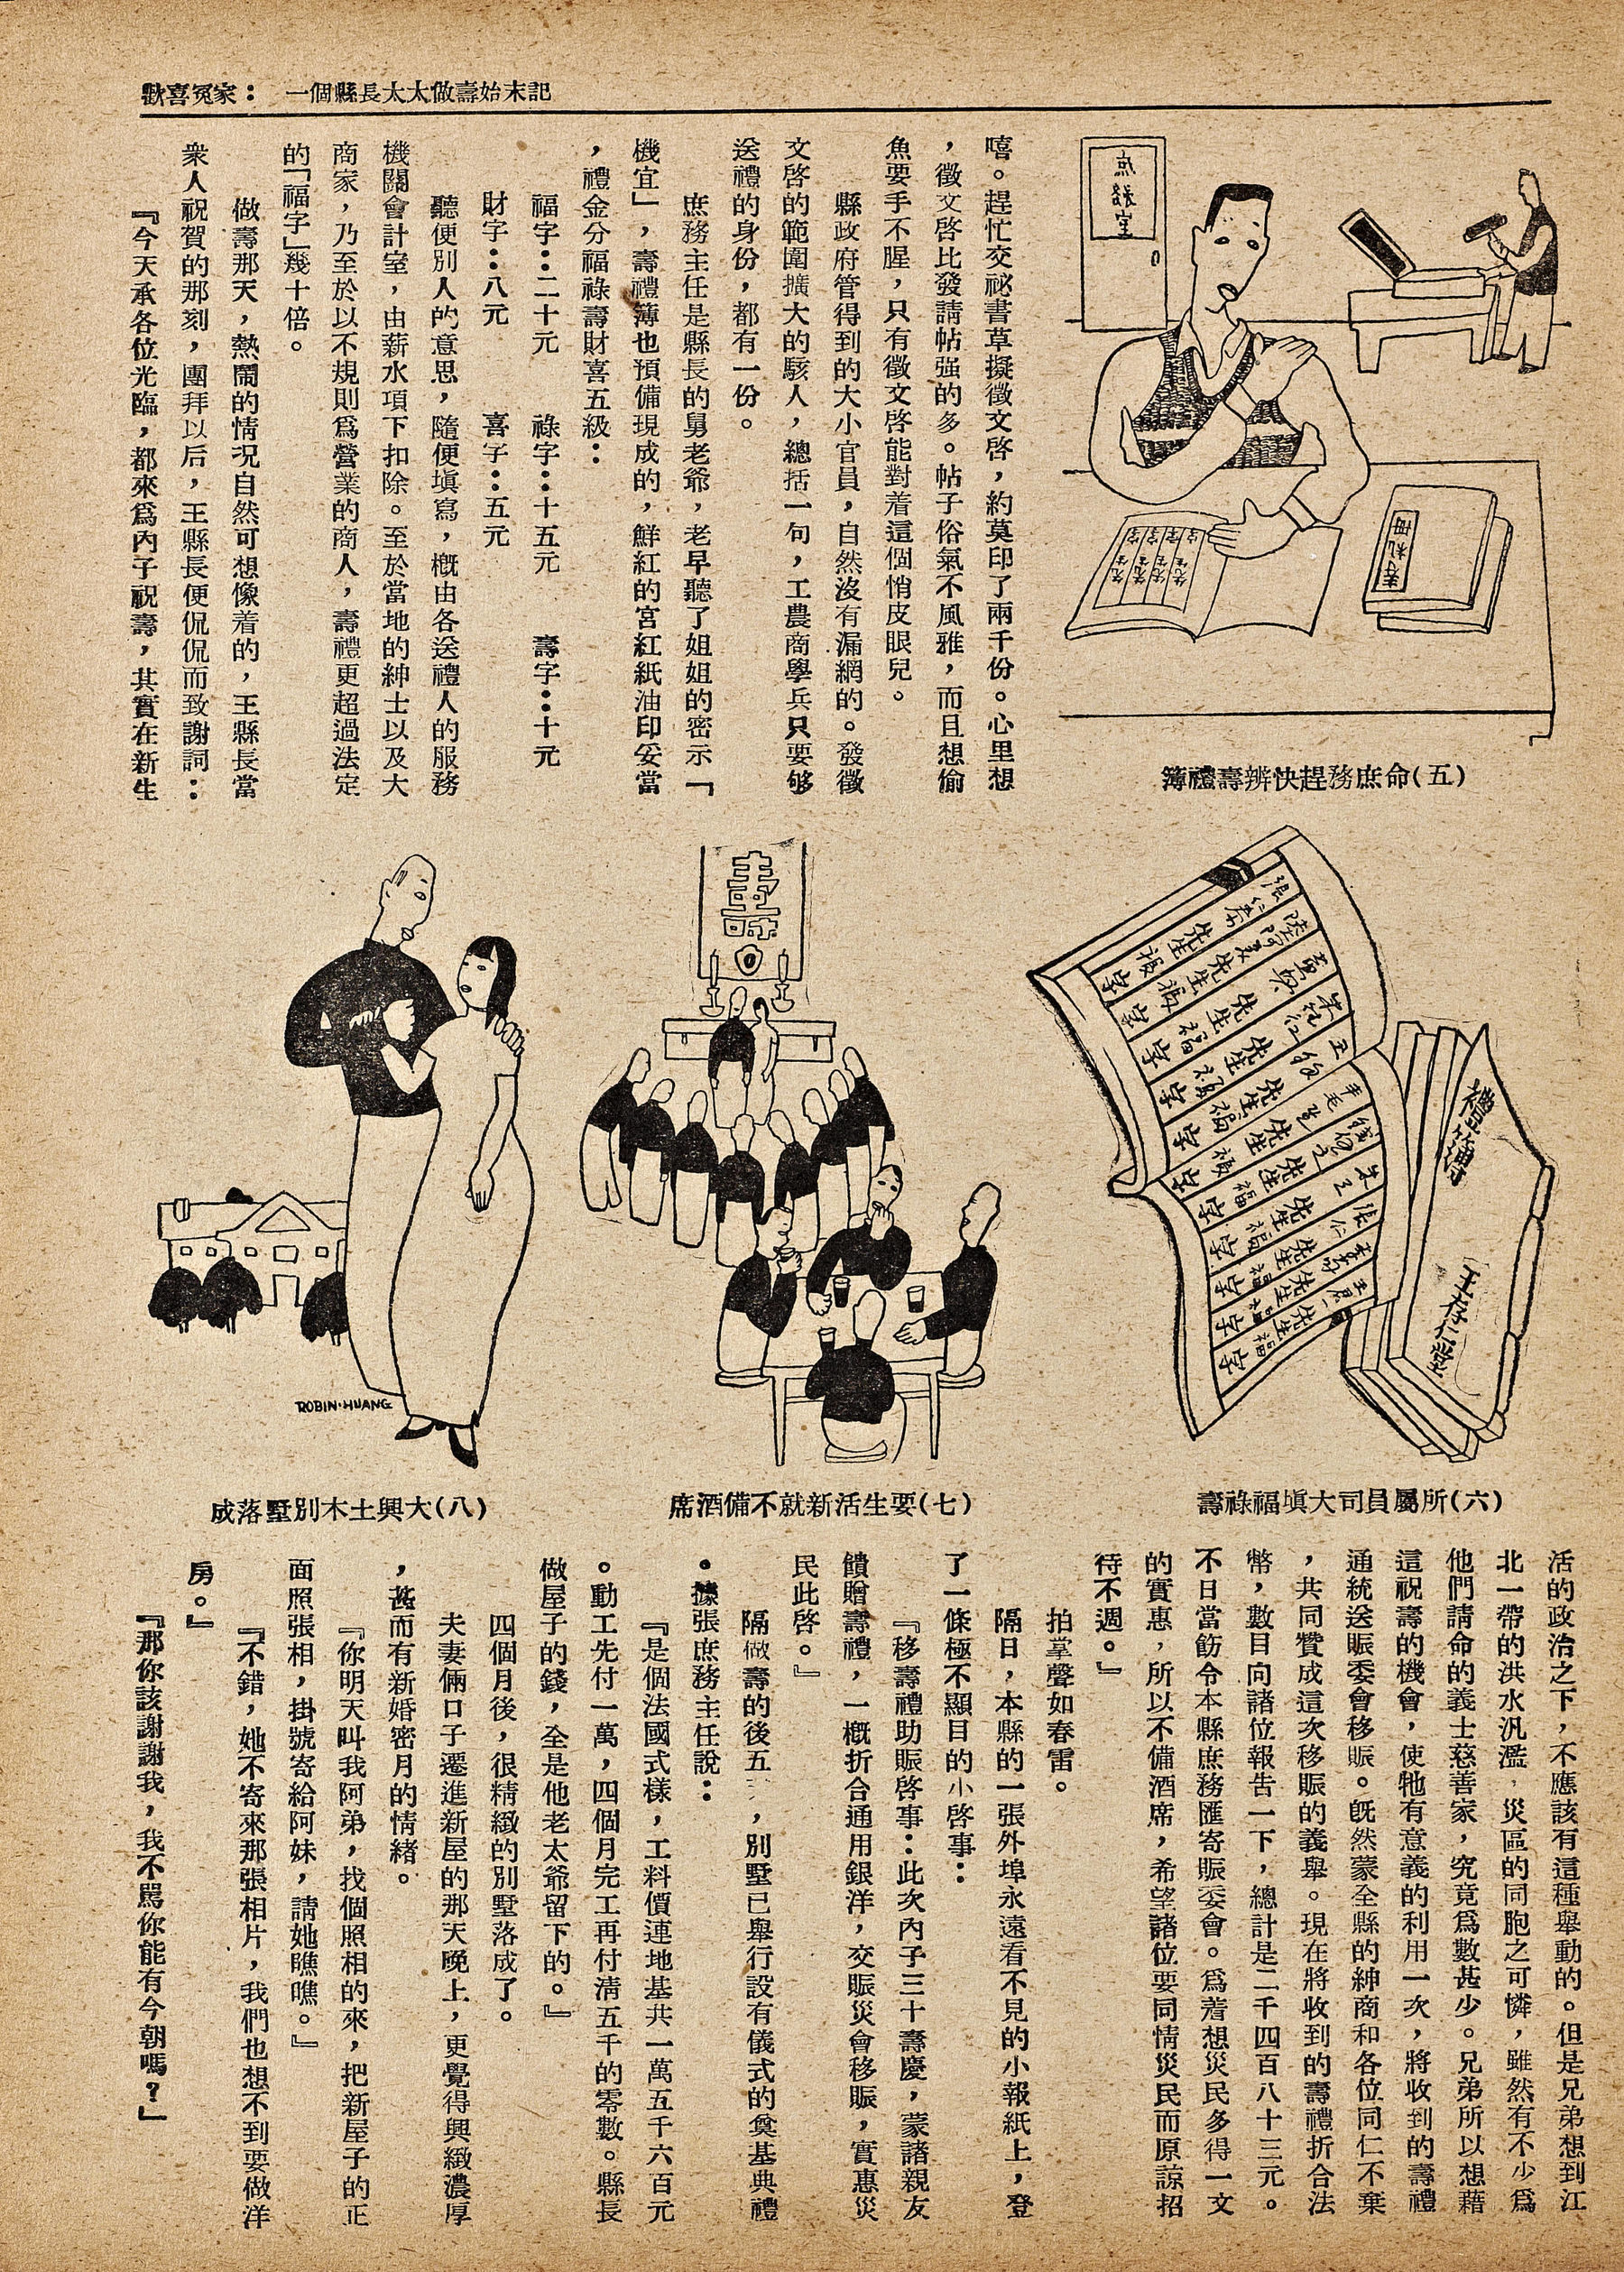 歡喜冤家：　一個縣長太太做壽始末記
嘻。趕忙交祕書草擬徵文啓，約莫印了兩千份。心里想
，徵文啓比發請帖强的多。帖子俗氣不風雅，而且想偷
魚要手不腥，只有徵文啓能對着這個悄皮眼兒。
縣政府管得到的大小官員，自然沒有漏網的。發徵
文啓的範圍擴大的駭人，總括一句，工農商學兵只要够
送禮的身份，都有一份。
庶務主任是縣長的舅老爺，老早聽了姐姐的密示「
機宜」，壽禮簿也預備現成的，鮮紅的宮紅紙油印妥當
，禮金分福祿壽財喜五級：
福字：二十元　祿字：十五元　壽字：十元
財字：八元　喜字：五元
聽便別人的意思，隨便塡寫，概由各送禮人的服務
機關會計室，由薪水項下扣除。至於當地的紳士以及大
商家，乃至於以不規則爲營業的商人，壽禮更超過法定
的「福字」幾十倍。
做壽那天，熱鬧的情况自然可想像着的，王縣長當
衆人祝賀的那刻，團拜以后，王縣長便侃侃而致謝詞：
『今天承各位光臨，都來爲內子祝壽，其實在新生
庶務室
壽礼冊
先生
先生
先生
先生
（五）命庶務趕快辨壽禮簿
禮簿
王存仁堂
先生福字
先生福字
先生福字
先生福字
先生福字
先生福字
先生福字
（六）所屬員司大塡福祿壽
壽
（七）要生活新就不備酒席
ROBIN·HUANG
（八）大興土木別墅落成
活的政治之下，不應該有這種舉動的。但是兄弟想到江
北一帶的洪水汎濫，災區的同胞之可憐，雖然有不少爲
他們請命的義士慈善家，究竟爲數甚少。兄弟所以想藉
這祝壽的機會，使牠有意義的利用一次，將收到的壽禮
通統送賑委會移賑。旣然蒙全縣的紳商和各位同仁不棄
，共同贊成這次移賑的義舉。現在將收到的壽禮折合法
幣，數目向諸位報告一下，總計是二千四百八十三元。
不日當飭令本縣庶務匯寄賑委會。爲着想災民多得一文
的實惠，所以不備酒席，希望諸位要同情災民而原諒招
待不週。』
拍掌聲如春雷。
隔日，本縣的一張外埠永遠看不見的小報紙上，登
了一條極不顯目的小啓事：
『移壽禮助賑啓事：此次內子三十壽慶，蒙諸親友
饋贈壽禮，一概折合通用銀洋，交賑災會移賑，實惠災
民此啓。』
隔做壽的後五，別墅已舉行設有儀式的奠基典禮
。據張庶務主任說：
『是個法國式樣，工料價連地基共一萬五千六百元
。動工先付一萬，四個月完工再付淸五千的零數。縣長
做屋子的錢，全是他老太爺留下的。』
四個月後，很精緻的別墅落成了。
夫妻倆口子遷進新屋的那天晚上，更覺得興緻濃厚
，甚而有新婚密月的情緒。
『你明天叫我阿弟，找個照相的來，把新屋子的正
面照張相，掛號寄給阿妹，請她瞧瞧。』
『不錯，她不寄來那張相片，我們也想不到要做洋
房。』
『那你該謝謝我，我不罵你能有今朝嗎？』